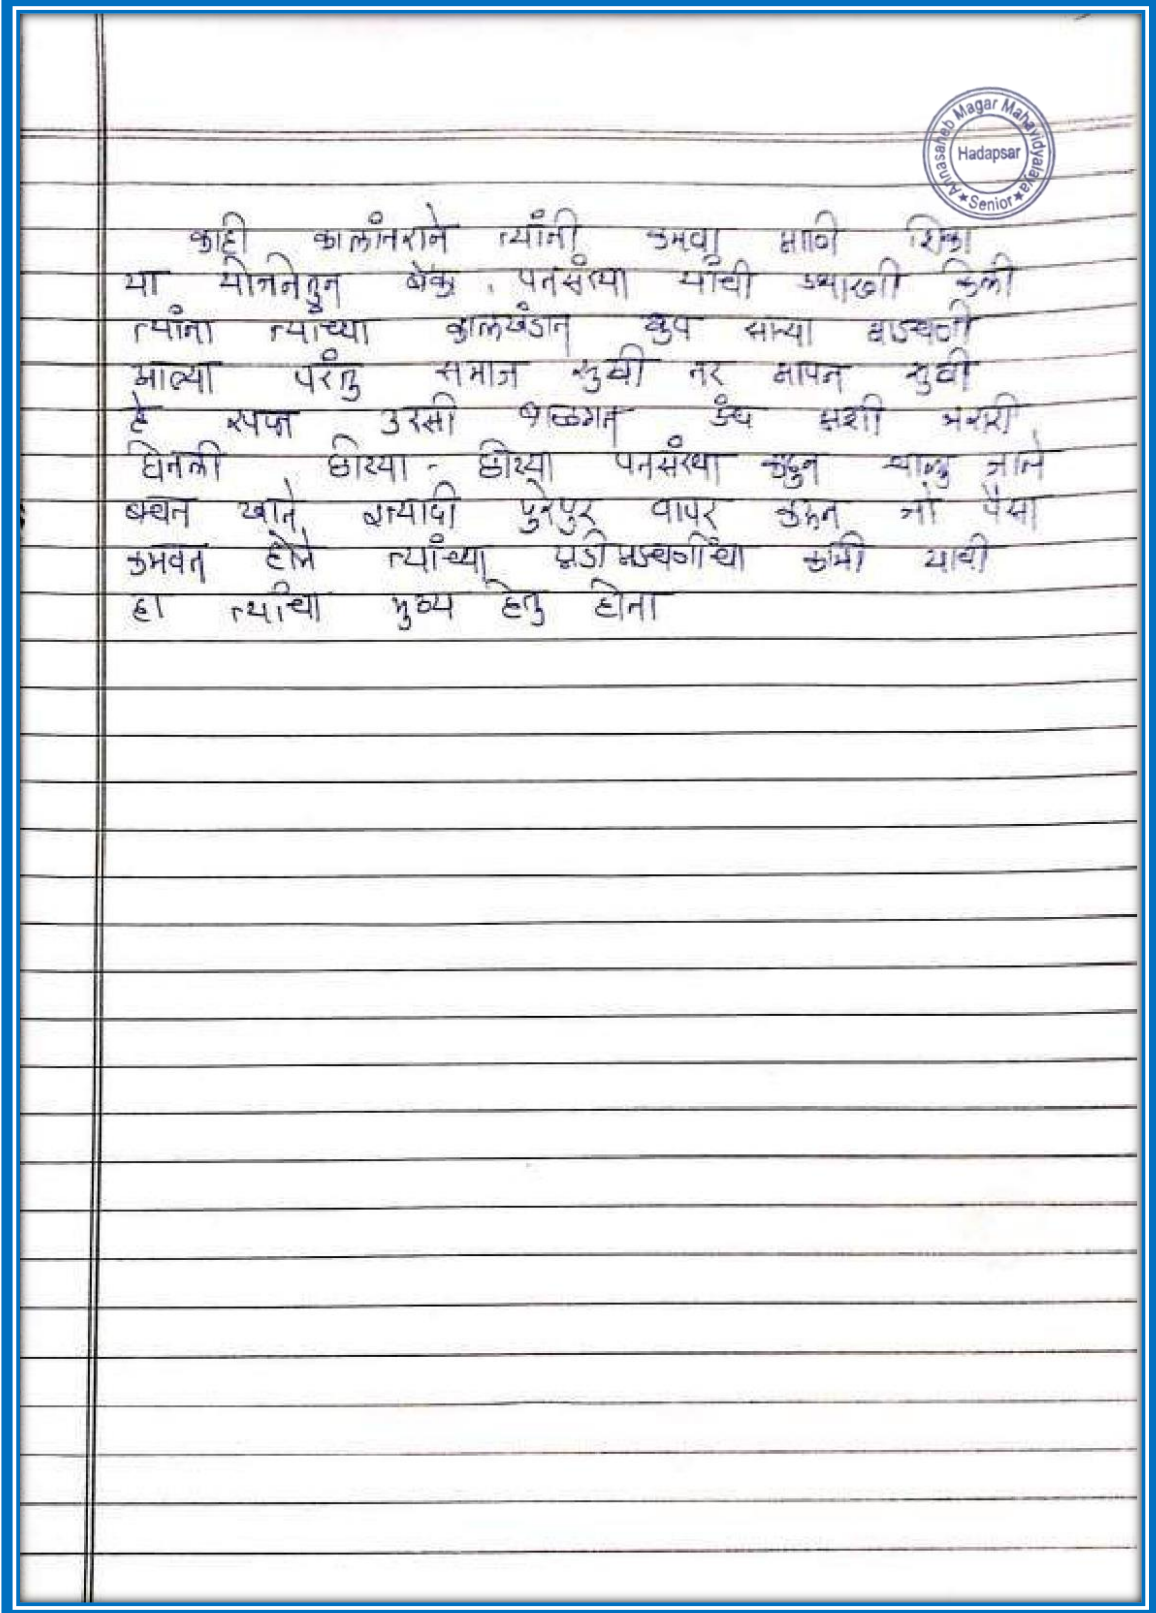 Annasaheb Magar Mahavidyalaya
Hadapsar
★ Senior ★
काही कालांतराने त्यांनी कमवा आणि शिका
या योजनेतुन बँक, पतसंस्था यांची उभारणी केली
त्यांना त्यांच्या कालखंडात खुप साऱ्या अडचणी
आल्या परंतु समाज सुखी तर आपन सुखी
हे स्वप्न उरसी बाळगत उंच अशी भरारी
घेतली छोट्या - छोट्या पतसंस्था काढुन चालु
बचत खाते इत्यादी पुरेपुर वापर करून जो पैसा
कमवत होते त्यांच्या अडीअडचणींचा कामी यावी
हा त्यांचा मुख्य हेतु होता